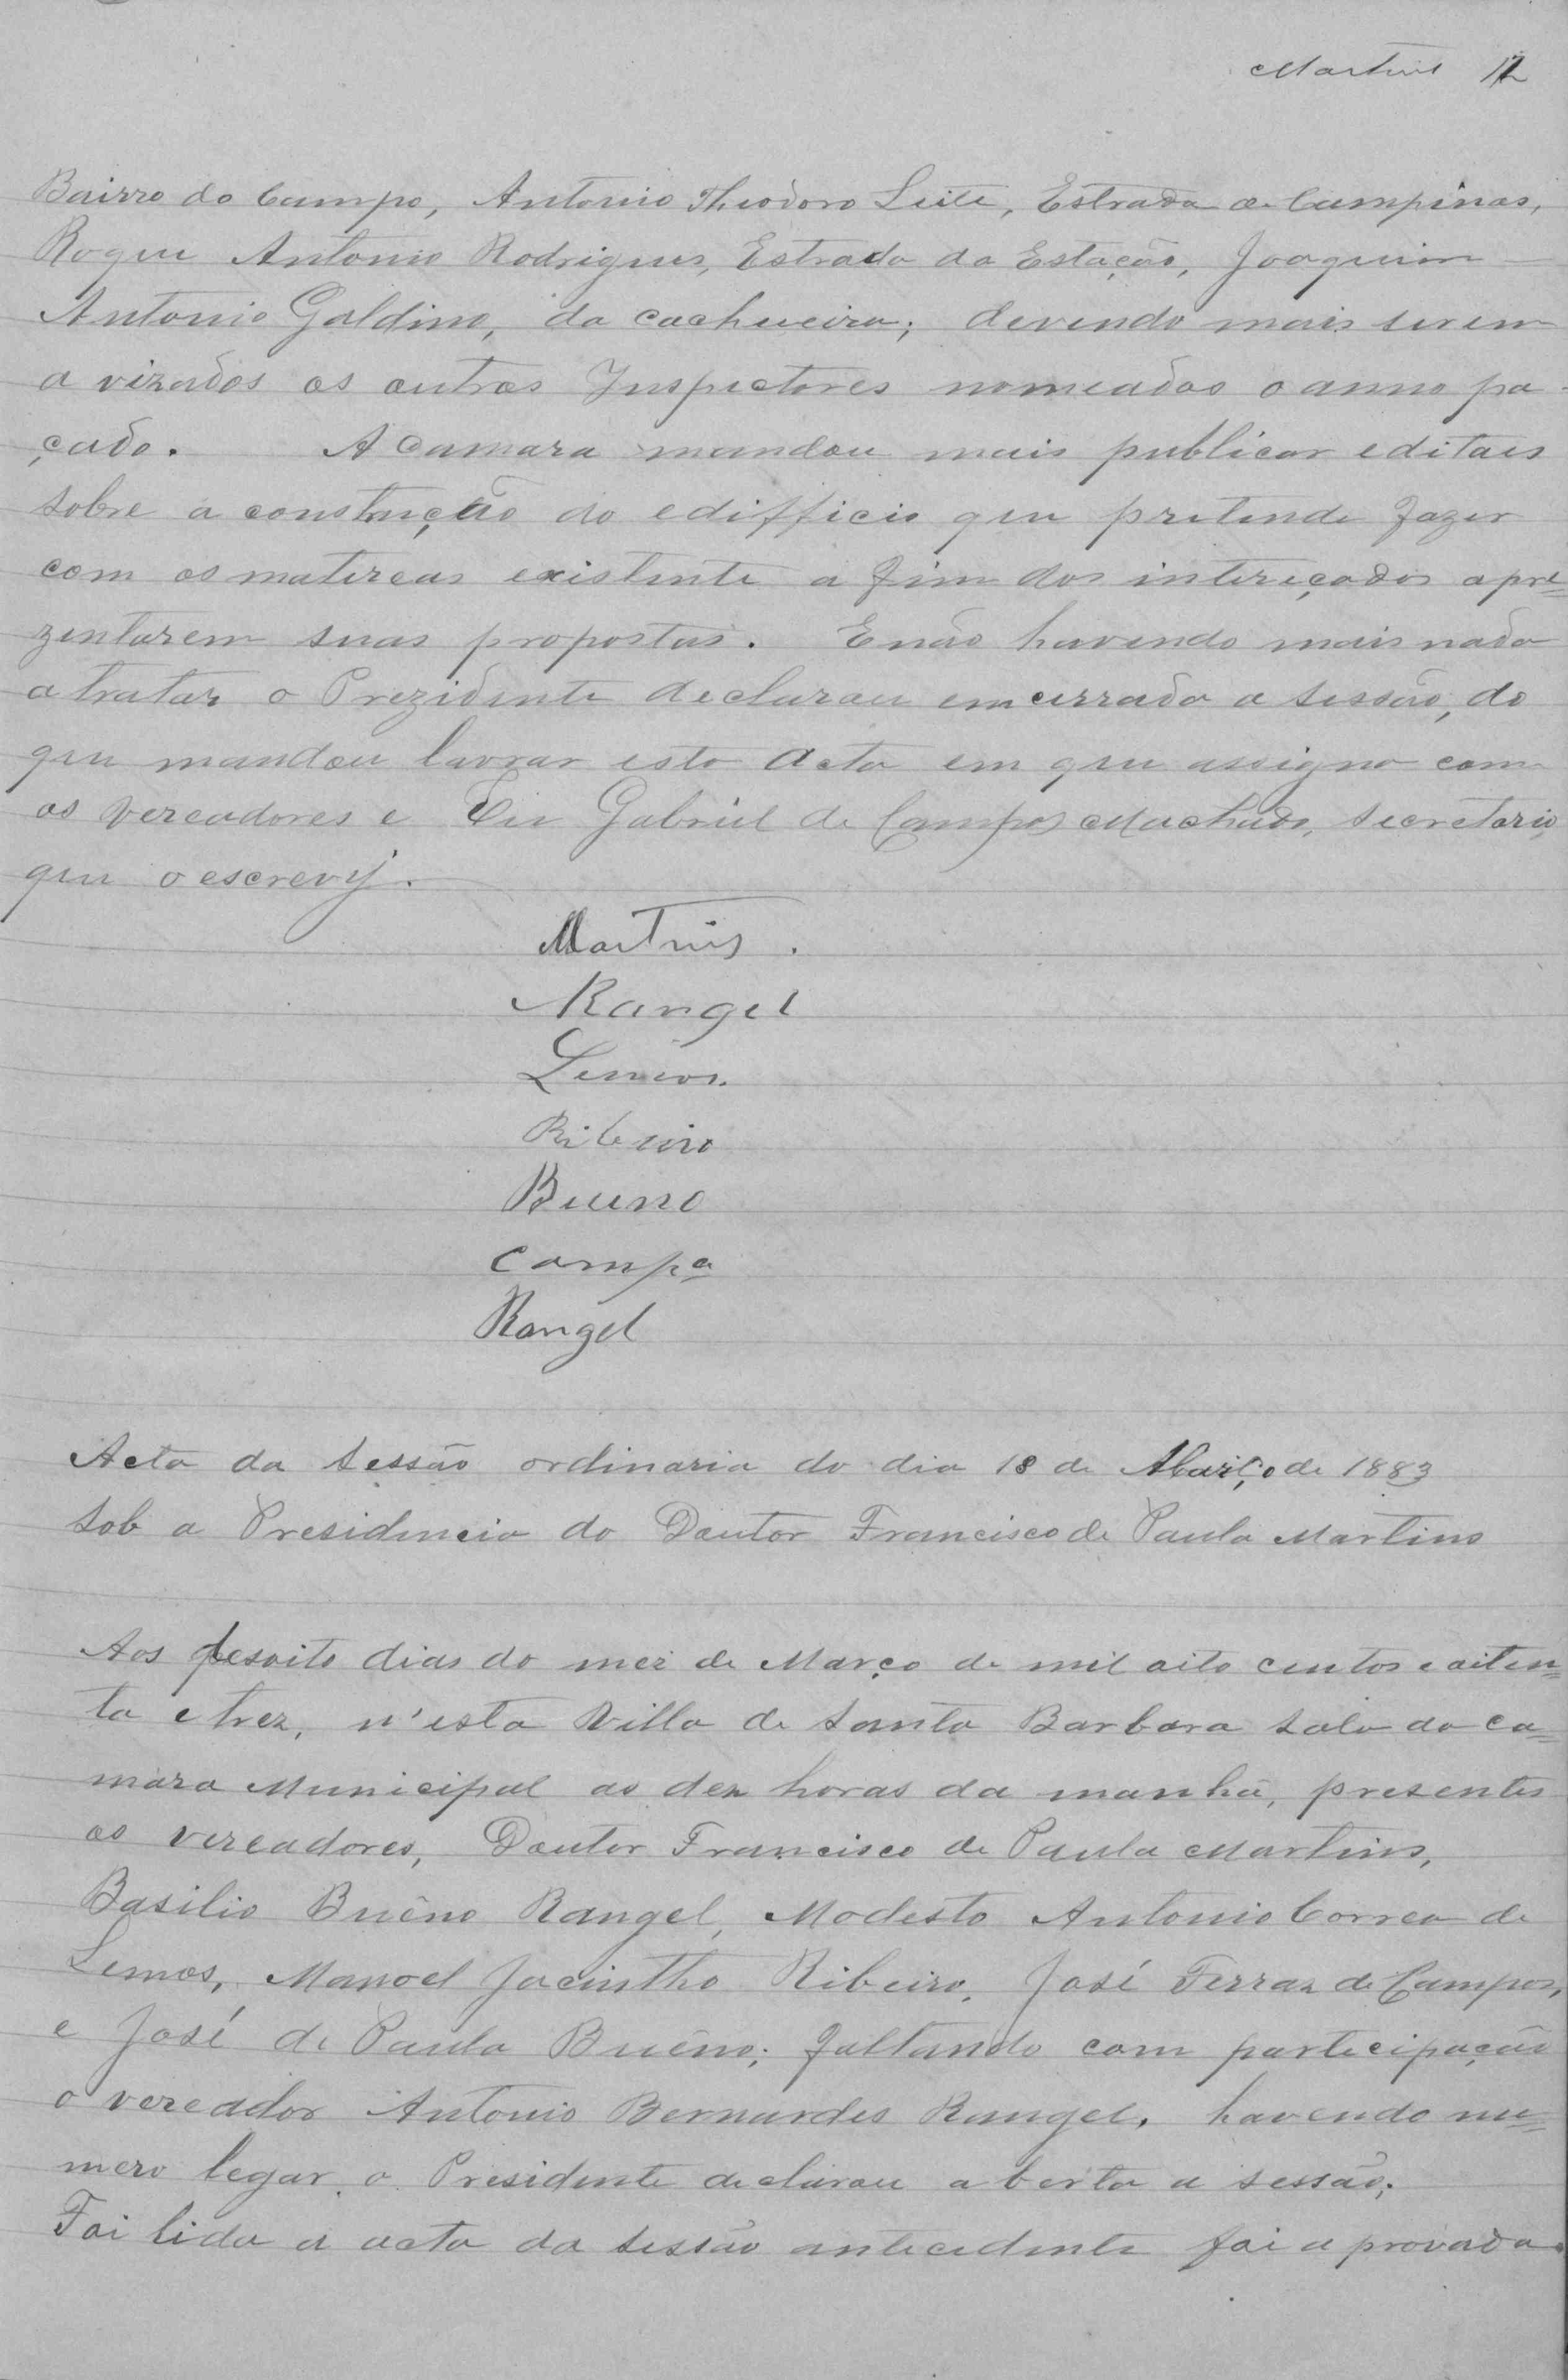 Martins 12
Bairro do Campo, Antonio Theodoro Leite, Estrada de Campinas,
Roque Antonio Rodrigues, Estrada da Estação, Joaquim
Antonio Galdino, da cachueira; devendo mais serem
a vizados os outros Inspectores nomeados o anno pa-
çado. A Camara mandou mais publicar editaes
sobre a construção do edifficio que pretende fazer
com os matereas existente a fim dos intereçados apre=
zentarem suas propostas. E não havendo mais nada
a tratar o Prezidente declarou emcerrada a sessão, do
que mandou lavrar esta Acta em que assigno com
os Vereadores e Eu Gabriel de Campos Machado, Secretario
que o escrevy.
Martins.
Rangel
Lemos.
Ribeiro
Bueno
Campos
Rangel
Acta da Sessão ordinaria do dia 18 de Março de 1883
Sob a Presidencia do Doutor Francisco de Paula Martins
Aos desoito dias do mez de Março de mil oito centos e oiten=
ta e trez, n'esta Villa de Santa Barbara sala da ca=
mara Municipal as dez horas da manhã, presentes
os vereadores, Doutor Francisco de Paula Martins,
Basilio Buêno Rangel, Modesto Antonio Correa de
Lemos, Manoel Jacintho Ribeiro, José Ferraz de Campos,
e José de Paula Buêno; faltando com participação
o vereador Antonio Bernardes Rangel, havendo nu=
mero legar o Presidente declarou aberta a sessão;
Foi lida a acta da sessão antecedente foi aprovada.